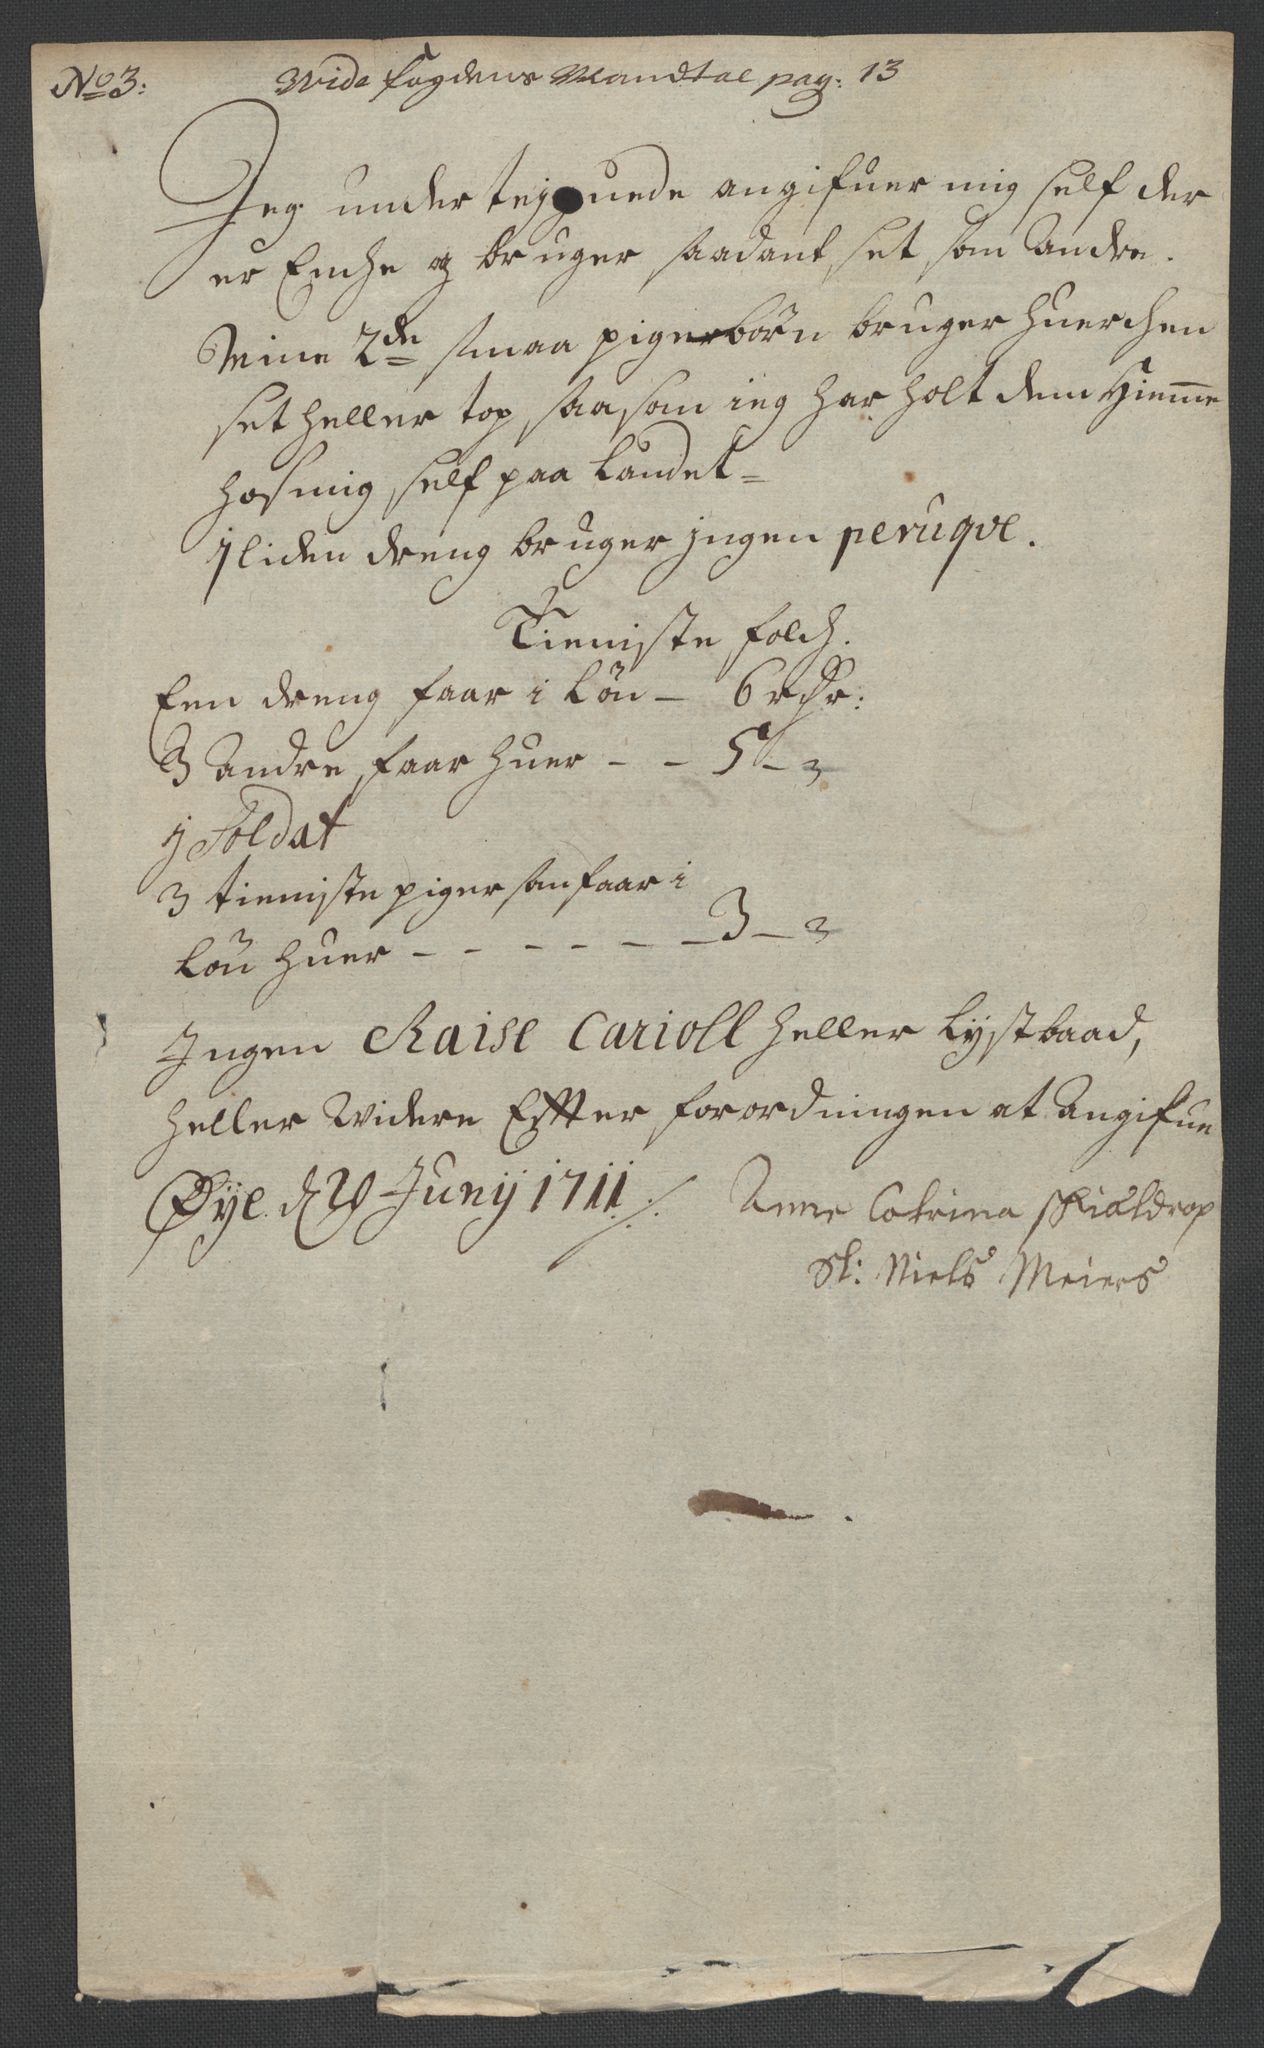 No 3: Wide fogdens Mandtal pag: 13
Jeg under tejgnede angifuer mig self der
er Enche og bruger saadant set som Andre.
Mine 2de smaa pigebörn bruger huerchen
set heller top, saasom ieg har holt dem Hieme
hos mig self paa Landet=
1 liden dreng bruger jngen peruqve.
Tieniste folch.
Een dreng faar i Lön – 6 rdr:
3 Andre faar huer – – 5 – 3
1 Soldat
3 tieniste piger som faar i
Lön huer – – – – – – – 3 – 3
Ingen Chaise Carioll heller Lystbaad,
heller Widere Efter forordningen at Angifue
Øye d 20 Junij 1711 ./.
Anne Catrina Skieldrop
Sl: Niels Meiers